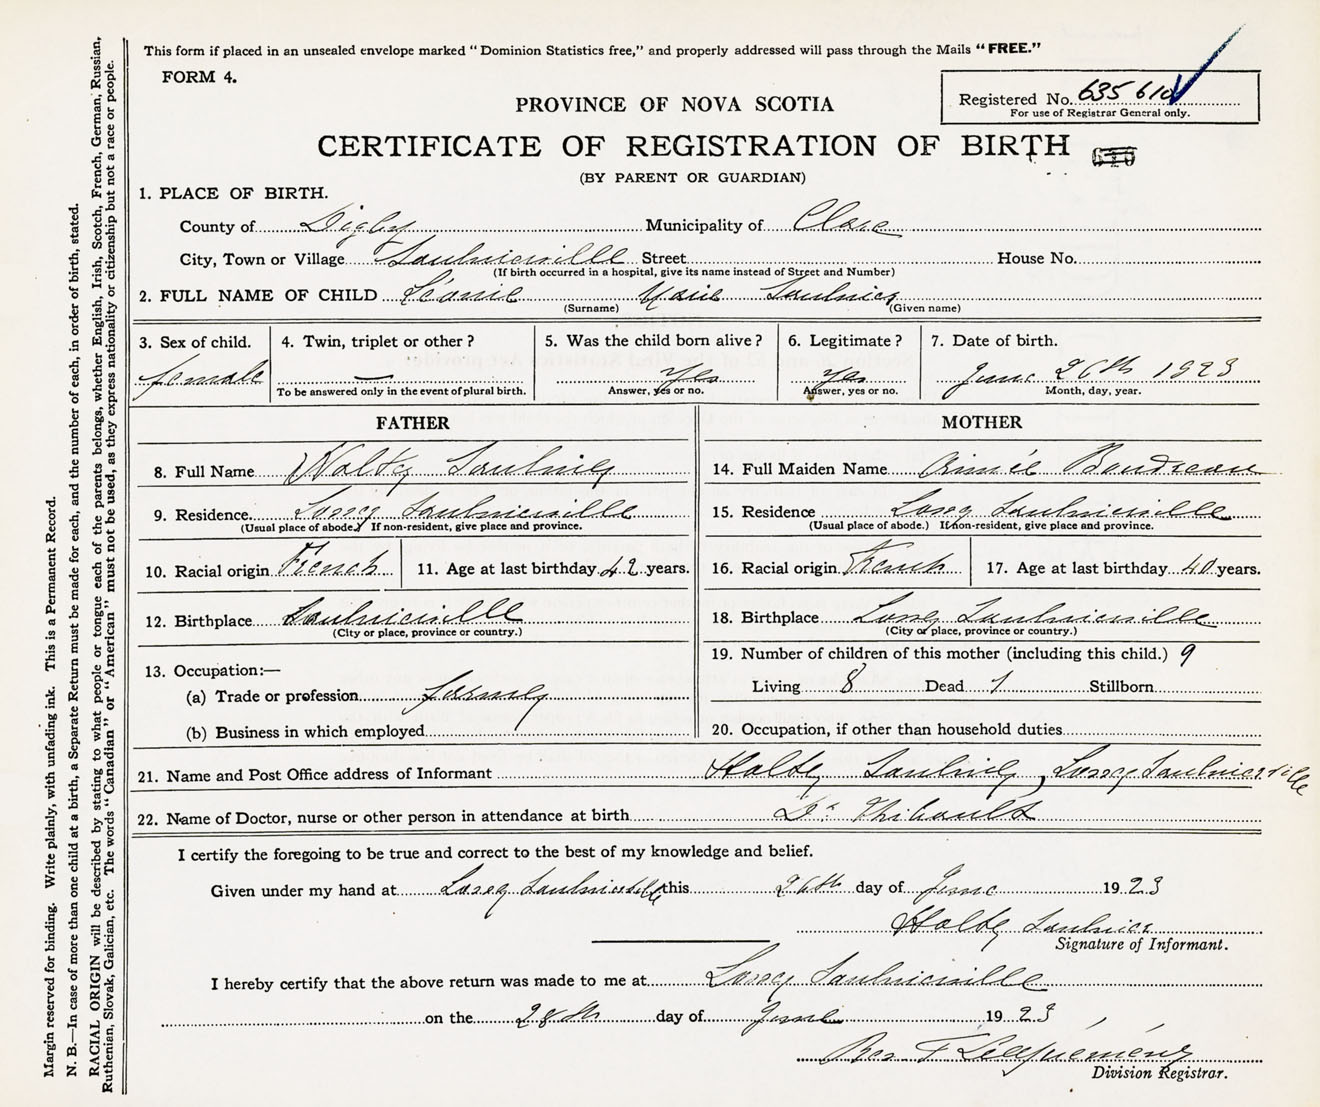 This form if placed in an unsealed envelope marked “Dominion Statistics free,” and properly addressed will pass through the Mails “FREE.”
FORM 4.
Registered No. 635 610
For use of Registrar General only.
PROVINCE OF NOVA SCOTIA
CERTIFICATE OF REGISTRATION OF BIRTH
(BY PARENT OR GUARDIAN)
1. PLACE OF BIRTH.
County of Digby Municipality of Clare
City, Town or Village Saulnierville Street House No.
(If birth occurred in a hospital, give its name instead of Street and Number)
2. FULL NAME OF CHILD Léonie Marie Saulnier
(Surname) (Given name)
3. Sex of child. 4. Twin, triplet or other? 5. Was the child born alive? 6. Legitimate? 7. Date of birth.
female — Yes Yes June 26th 1923
To be answered only in the event of plural birth. Answer, yes or no. Answer, yes or no. Month, day, year.
FATHER
8. Full Name Walter Saulnier
9. Residence Saulnierville
(Usual place of abode.) If non-resident, give place and province.
10. Racial origin French 11. Age at last birthday 42 years.
12. Birthplace Saulnierville
(City or place, province or country.)
13. Occupation:—
(a) Trade or profession farmer
(b) Business in which employed
MOTHER
14. Full Maiden Name Aimée Boudreau
15. Residence Saulnierville
(Usual place of abode.) If non-resident, give place and province.
16. Racial origin French 17. Age at last birthday 40 years.
18. Birthplace Saulnierville
(City or place, province or country.)
19. Number of children of this mother (including this child.) 9
Living 8 Dead 1 Stillborn
20. Occupation, if other than household duties
21. Name and Post Office address of Informant Saulnier, Saulnierville
22. Name of Doctor, nurse or other person in attendance at birth Dr Thibault
I certify the foregoing to be true and correct to the best of my knowledge and belief.
Given under my hand at Saulnierville this 26th day of June 1923
Saulnier
Signature of Informant.
I hereby certify that the above return was made to me at Saulnierville
on the 28th day of June 1923
Division Registrar.
Margin reserved for binding. Write plainly, with unfading ink. This is a Permanent Record.
N. B.—In case of more than one child at a birth, a Separate Return must be made for each, and the number of each, in order of birth, stated.
RACIAL ORIGIN will be described by stating to what people or tongue each of the parents belongs, whether English, Irish, Scotch, French, German, Russian,
Ruthenian, Slovak, Galician, etc. The words “Canadian” or “American” must not be used, as they express nationality or citizenship but not a race or people.